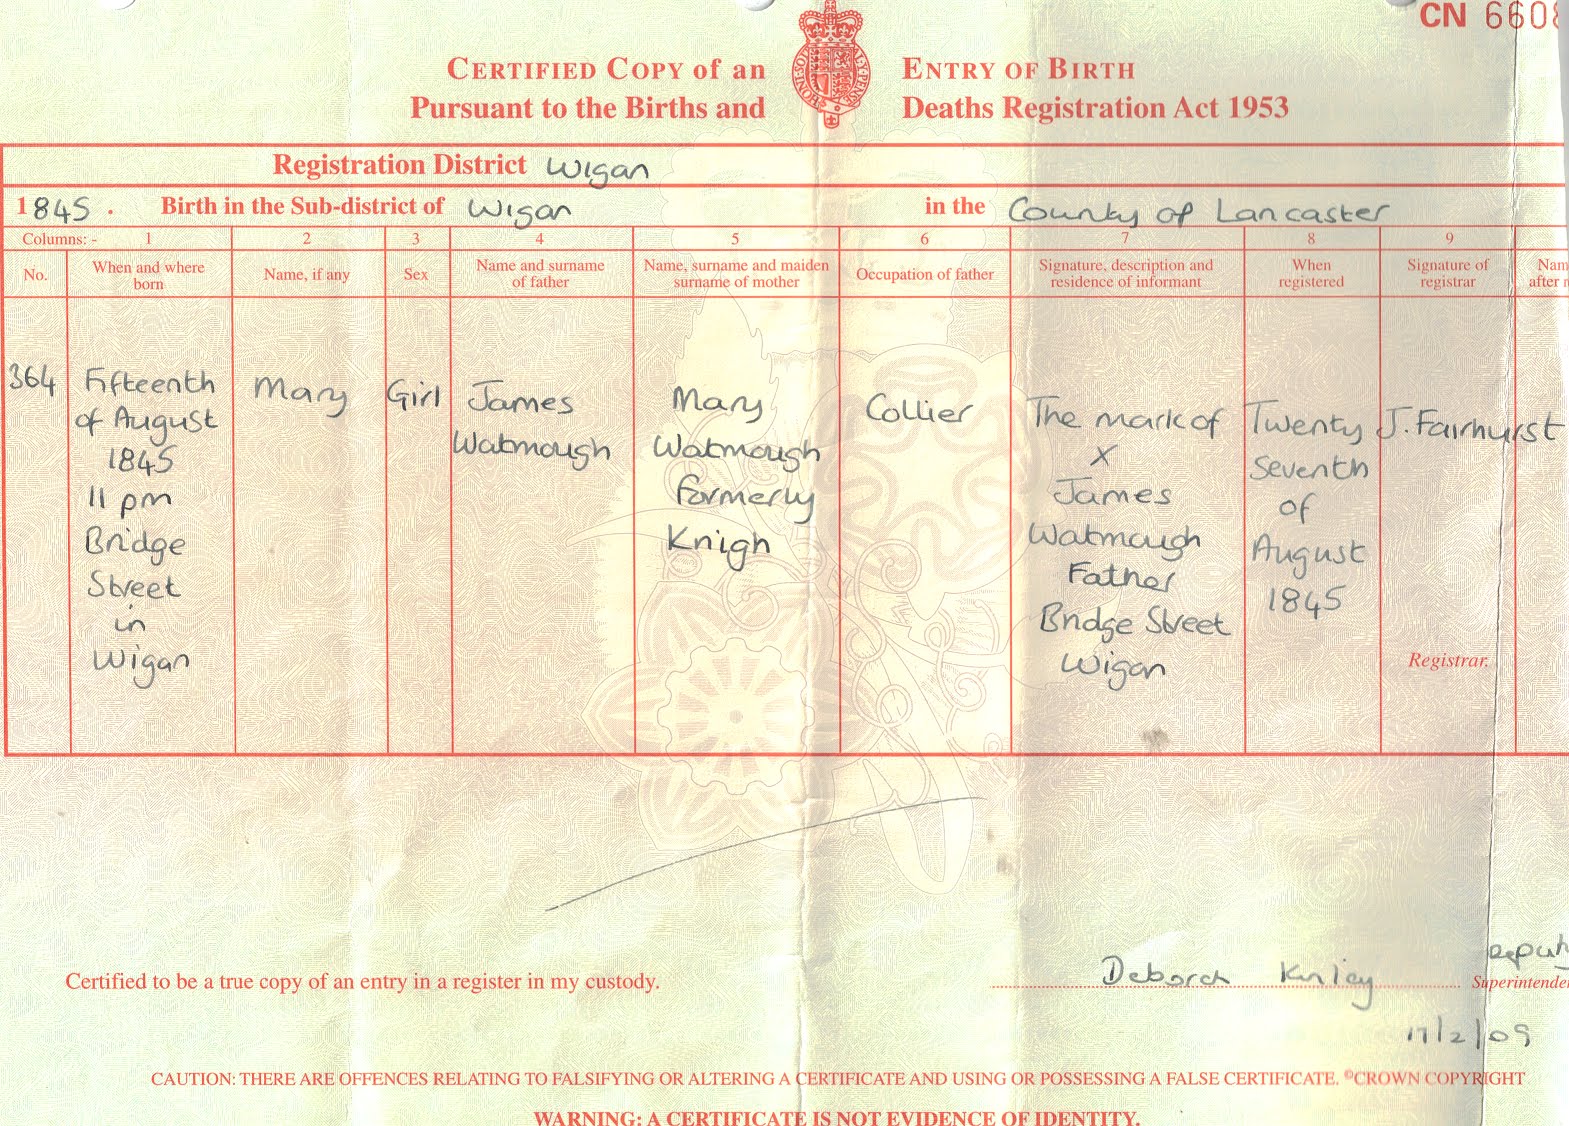 CN 6608
CERTIFIED COPY of an ENTRY OF BIRTH
Pursuant to the Births and Deaths Registration Act 1953
Registration District Wigan
1845. Birth in the Sub-district of Wigan in the County of Lancaster
Columns:- 1 2 3 4 5 6 7 8 9
No.
When and where
born
Name, if any
Sex
Name and surname
of father
Name, surname and maiden
surname of mother
Occupation of father
Signature, description and
residence of informant
When
registered
Signature of
registrar
Nam
after
364
Fifteenth
of August
1845
11 pm
Bridge
Street
in
Wigan
Mary
Girl
James
Watmough
Mary
Watmough
formerly
Knigh
Collier
The mark of
X
James
Watmough
Father
Bridge Street
Wigan
Twenty
Seventh
of
August
1845
J. Fairhurst
Registrar.
Certified to be a true copy of an entry in a register in my custody.
Deborah Kinley
Deput
Superintende
17/2/09
CAUTION: THERE ARE OFFENCES RELATING TO FALSIFYING OR ALTERING A CERTIFICATE AND USING OR POSSESSING A FALSE CERTIFICATE. ©CROWN COPYRIGHT
WARNING: A CERTIFICATE IS NOT EVIDENCE OF IDENTITY.